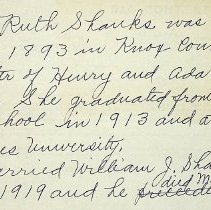 Ruth Shanks was
1893 in Knox Coun
ter of Henry and Ada
She graduated from
chool in 1913 and a
es University.
arried William J. Sha
(died M
1919 and he preceded